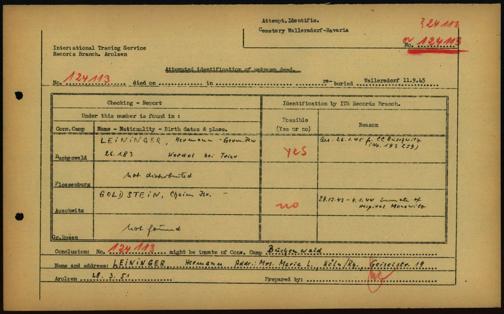 Attempt. Identific.
Cemetery Wallersdorf-Bavaria
324113
No. 124113
International Tracing Service
Records Branch. Arolsen
Attempted identification of unknown dead.
No. 124113 died on in re-buried Wallersdorf 11.9.45
Checking - Report
Identification by ITS Records Branch.
Under this number is found in:
Possible (Yes or no)
Reason
Conc.Camp
Name - Nationality - Birth dates & place.
LEININGER, Hermann -
Buchenwald
22.1.83
bei Trier
yes
not distributed
Flossenburg
GOLDSTEIN, Chaim Isr. -
Auschwitz
no
not found
Gr.Rosen
Conclusion: No. 124113 might be inmate of Conc. Camp Buchenwald
Name and address: LEININGER, Hermann Addr.: Mrs. Maria L., Köln/Rh., 19
Arolsen 28.3.51 Prepared by: